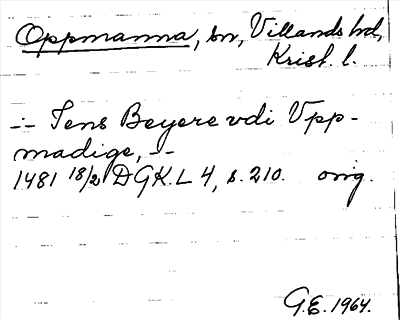 Oppmanna, sn, Villands hd,
Krist. l.
-:- Jens Beyere vdi Vpp-
madige, -:-
1481 18/2 DGK.L 4, s. 210. orig.
G.E. 1964.